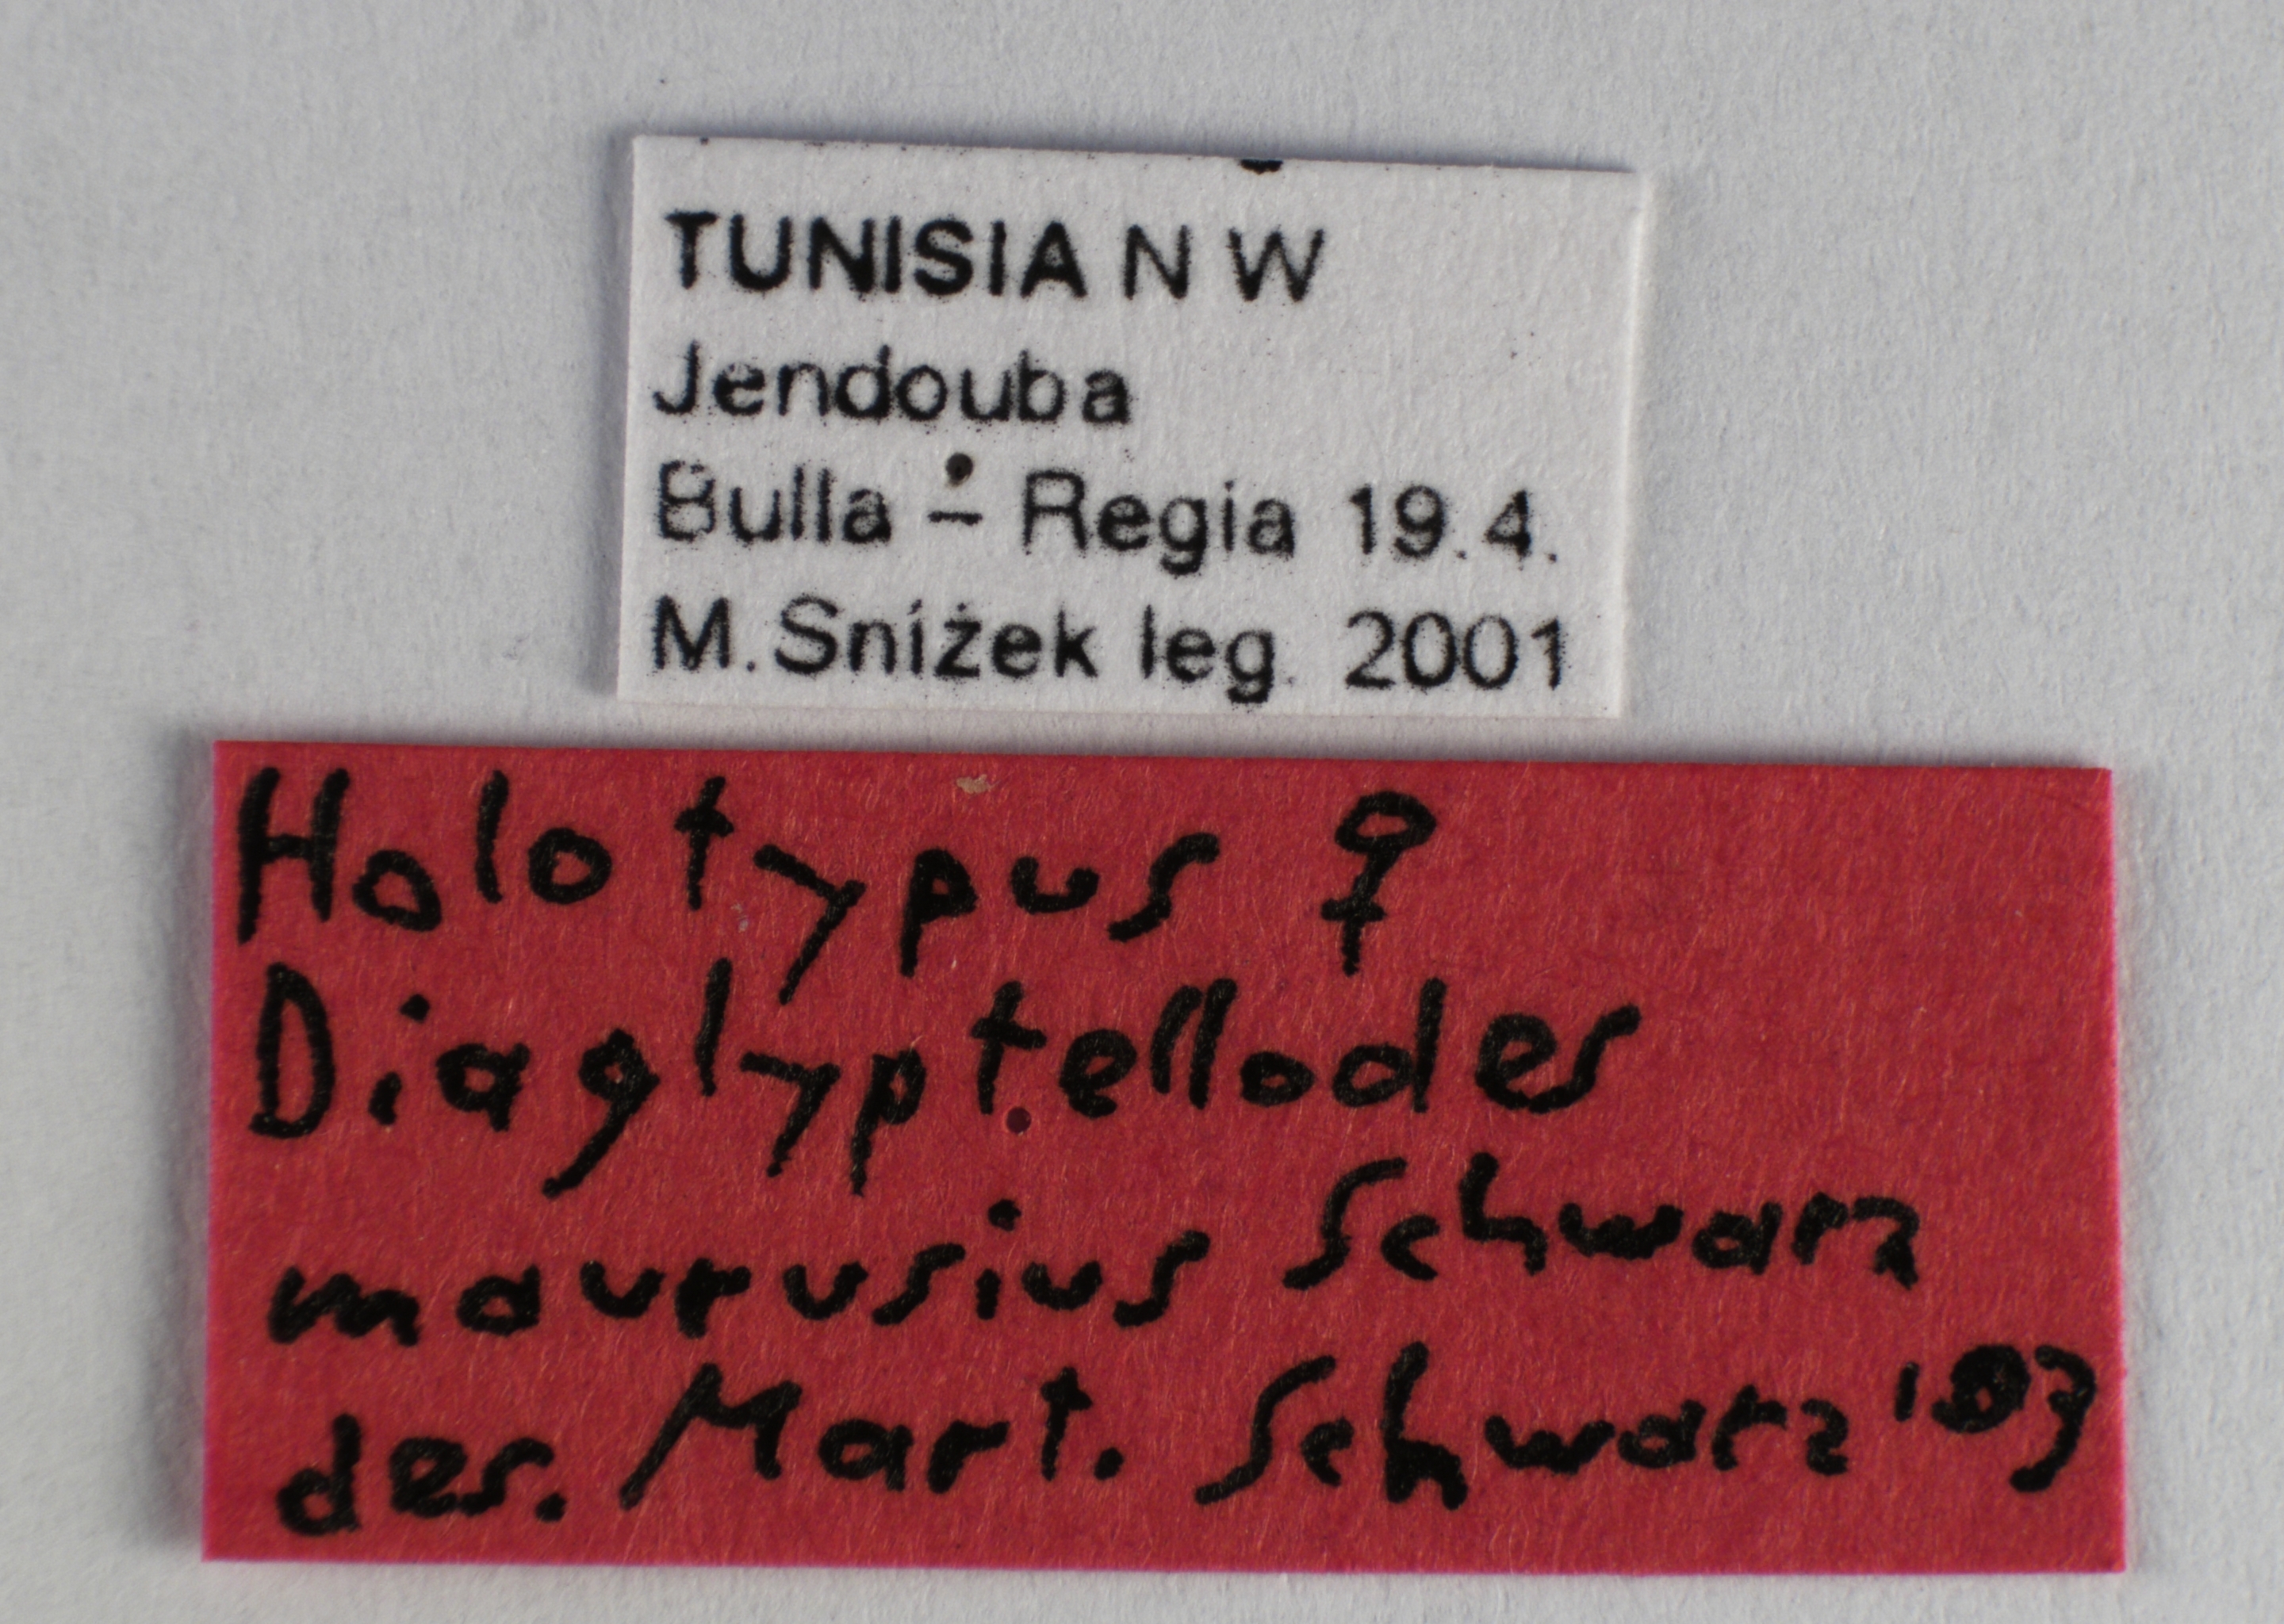 TUNISIA N W
Jendouba
Bulla - Regia 19.4.
M.Snížek leg. 2001
Holotypus ♀
Diaglyptellodes
maurusius Schwarz
des. Mart. Schwarz '03